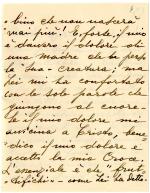 bino che non nascerà
mai più! E, forte, il mio
è davvero il dolore di
una madre che ha perso
la Sua creatura; ma
lei mi ha confortato
con le sole parole che
giungono al cuore.
Se il mio dolore mi
avvicina a Cristo, bene-
dico il mio dolore e
accetto la mia Croce.
L'essenziale è che frut-
tifichi - come Lei ha detto